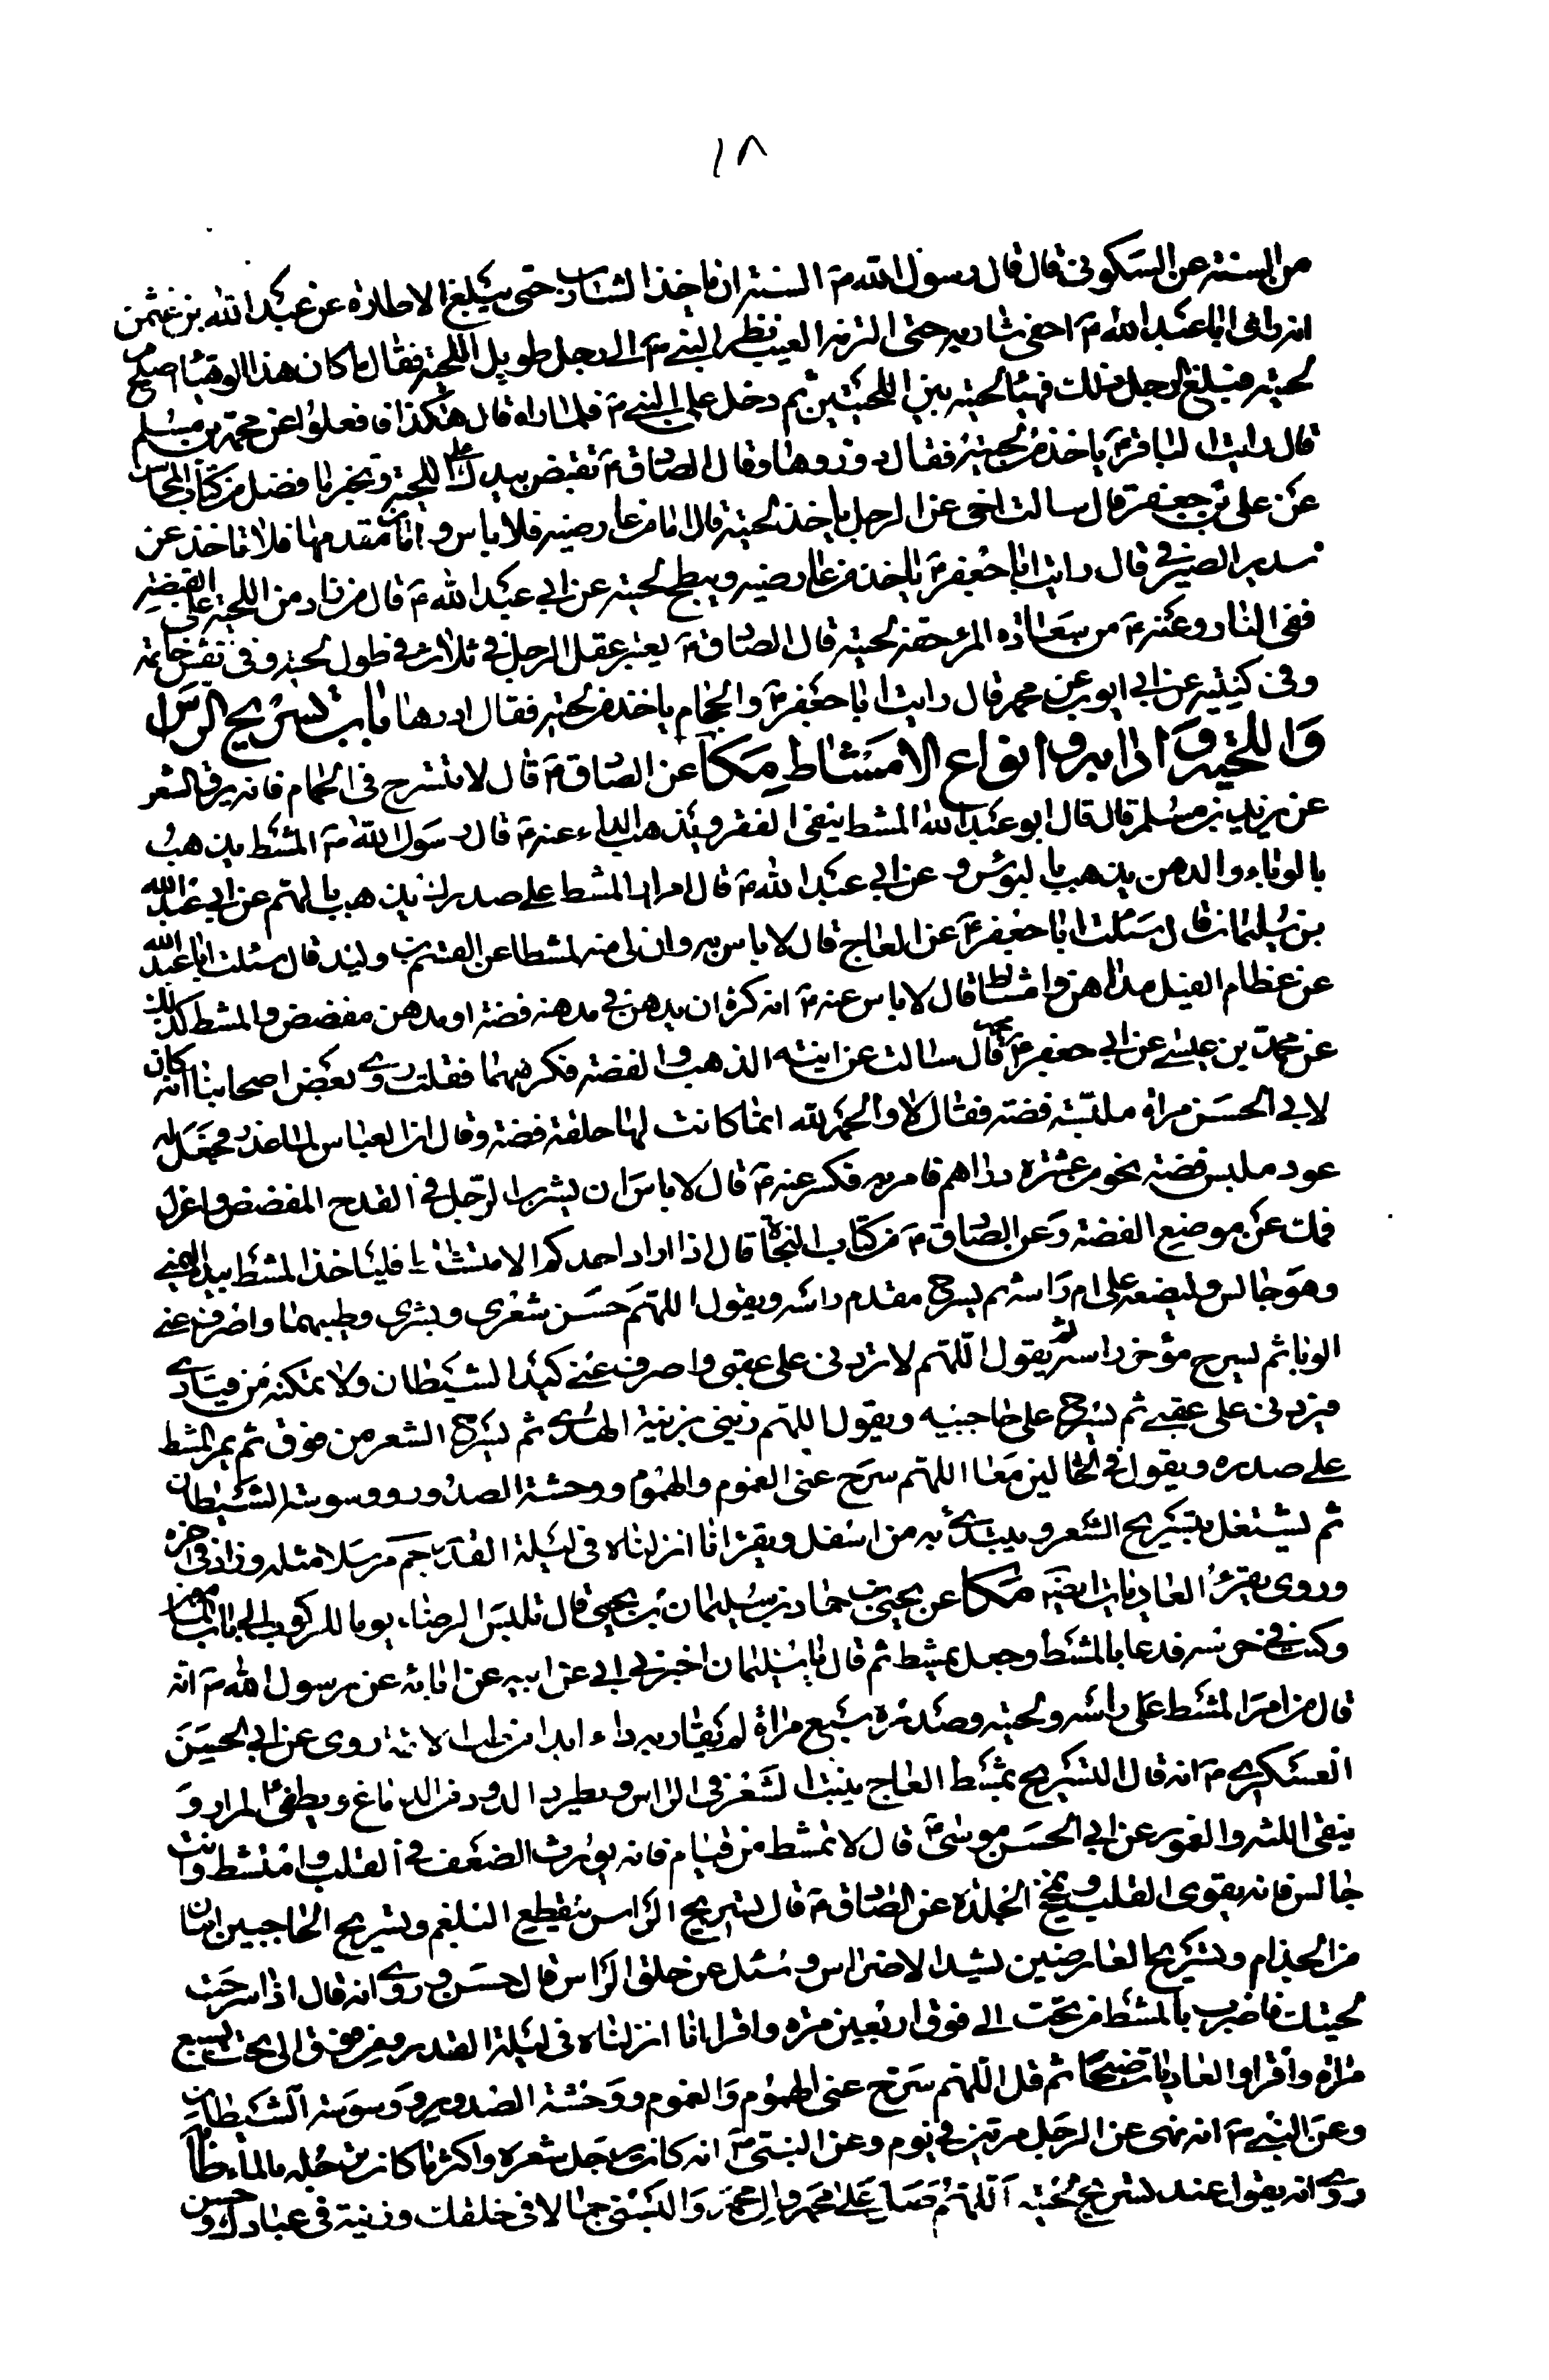 ١٨
من السنة عن السكونى قال قال رسول الله ص السنة ان تاخذ الشارب حتى يبلغ الاطارة عن عبد الله بن عثمن
انه راى ابا عبد الله ع احفى شاربه حتى الزقه العيب نظر النبى ص الى رجل طويل اللحية فقال ما كان هذا لو هيا اصلح من
لحيته فبلغ الرجل ذلك فهيا لحيته بين اللحيتين ثم دخل على النبى ص فلما راه قال هكذا فافعلوا عن محمد بن مسلم
قال رايت الباقر ع ياخذ من لحيته فقال دوروها وقال الصادق ع تقبض بيدك على اللحية وتجز ما فضل من كتاب المحاسن
عن على بن جعفر قال سالت اخى عن الرجل ياخذ لحيته قال اما من عارضيه فلا باس و اما من مقدمها فلا تاخذ عن
سدير الصيرفى قال رايت ابا جعفر ع ياخذ من عارضيه ويبطح لحيته عن ابى عبد الله ع قال من زاد من اللحية على القبضة
ففى النار وعنه ع من سعادة المرء خفة لحيته قال الصادق ع يعتبر عقل الرجل فى ثلاث فى طول لحيته وفى نقش خاتمه
وفى كنيته عن ابى ايوب عن محمد قال رايت ابا جعفر ع والحجام ياخذ من لحيته فقال ادرها باب تسريح الراس
واللحية وآدابه وانواع الامشاط مكا عن الصادق ع قال لا تتسرح فى الحمام فانه يرق الشعر
عن يزيد بن مسلم قال قال ابو عبد الله المشط ينفى الفقر ويذهب الداء عنه ع قال رسول الله ص المشط يذهب
بالوباء والدهن يذهب بالبؤس و عن ابى عبد الله ع قال امرار المشط على صدرك يذهب بالهم عن ابى عبد الله
بن سليمان قال سئلت ابا جعفر ع عن العاج قال لا باس به وان لى منه لمشطا عن القسم بن وليد قال سئلت ابا عبد الله
عن عظام الفيل مداهن وامشاط قال لا باس عنه ع انه كره ان يدهن فى مدهنه فضة او مدهن مفضض والمشط كذلك
عن محمد بن عيسى عن ابى جعفر ع قال سالت عن انية الذهب والفضة فكرههما فقلت روى بعض اصحابنا انه كان
لابى الحسن مراة ملبسة فضة فقال لا والحمد لله انما كانت لها حلقة فضة وقال ان العباس لما عذر جعل له
عود ملبس فضة نحو من عشرة دراهم فامر به فكسر عنه ع قال لا باس ان يشرب الرجل فى القدح المفضض واعزل
فمك عن موضع الفضة وعن الصادق ع من كتاب النجاة قال اذا اراد احدكم الامتشاط فلياخذ المشط بيده اليمنى
وهو جالس وليضعه على ام راسه ثم يسرح مقدم راسه ويقول اللهم حسن شعرى وبشرى وطيبهما واصرف عنى
الوبا ثم يسرح مؤخر راسه ثم يقول اللهم لا تردنى على عقبى واصرف عنى كيد الشيطان ولا تمكنه من قيادى
فيردنى على عقبى ثم يسرح على حاجبيه ويقول اللهم زينى بزينة الهدى ثم يسرح الشعر من فوق ثم يمر المشط
على صدره ويقول فى الحالين معا اللهم سرح عنى الغموم والهموم ووحشة الصدور ووسوسة الشيطان
ثم يشتغل بتسريح الشعر و يبتدئ به من اسفل ويقرا انا انزلناه فى ليلة القدر جم مرسلا مثله وزاد فى اخره
وروى يقرء العاديات ايضه مكا عن يحيى بن حماد بن سليمان بن يحيى قال تلبس الرضا ع يوما للركوب الى باب المامون
وكنت فى حرسه فدعا بالمشط وجعل يمشط ثم قال يا سليمان اخبرنى ابى عن ابيه عن ابائه عن رسول الله ص انه
قال من امر المشط على راسه ولحيته وصدره سبع مراة لم يقاربه داء ابدا روى عن ابى الحسن
العسكرى ع انه قال التسريح بمشط العاج ينبت الشعر فى الراس ويطرد الدود من الدماغ ويطفئ المرار و
ينقى اللثه والعمور عن ابى الحسن موسى ع قال لا تمشط من قيام فانه يورث الضعف فى القلب وامتشط وانت
جالس فانه يقوى القلب ويمخخ الجلدة عن الصادق ع قال تسريح الراس يقطع البلغم وتسريح الحاجبين امان
من الجذام وتسريح العارضين يشد الاضراس و سئل عن حلق الراس قال حسن وروى انه قال اذا سرحت
لحيتك فاضرب بالمشط من تحت الى فوق اربعين مرة واقرا انا انزلناه فى ليلة القدر ومن فوق الى تحت سبع
مراة واقرا والعاديات ضبحا ثم قل اللهم سرح عنى الهموم والغموم ووحشة الصدور ووسوسة الشيطان
وعن النبى ص انه نهى عن الرجل مرتين فى يوم وعن النبى ص انه كان يرجل شعره واكثر ما كان يرجله بالماء
روى انه يقول عند تسريح لحيته اللهم صل على محمد وال محمد والبسنى جمالا فى خلقك وزينة فى عبادك وحسن